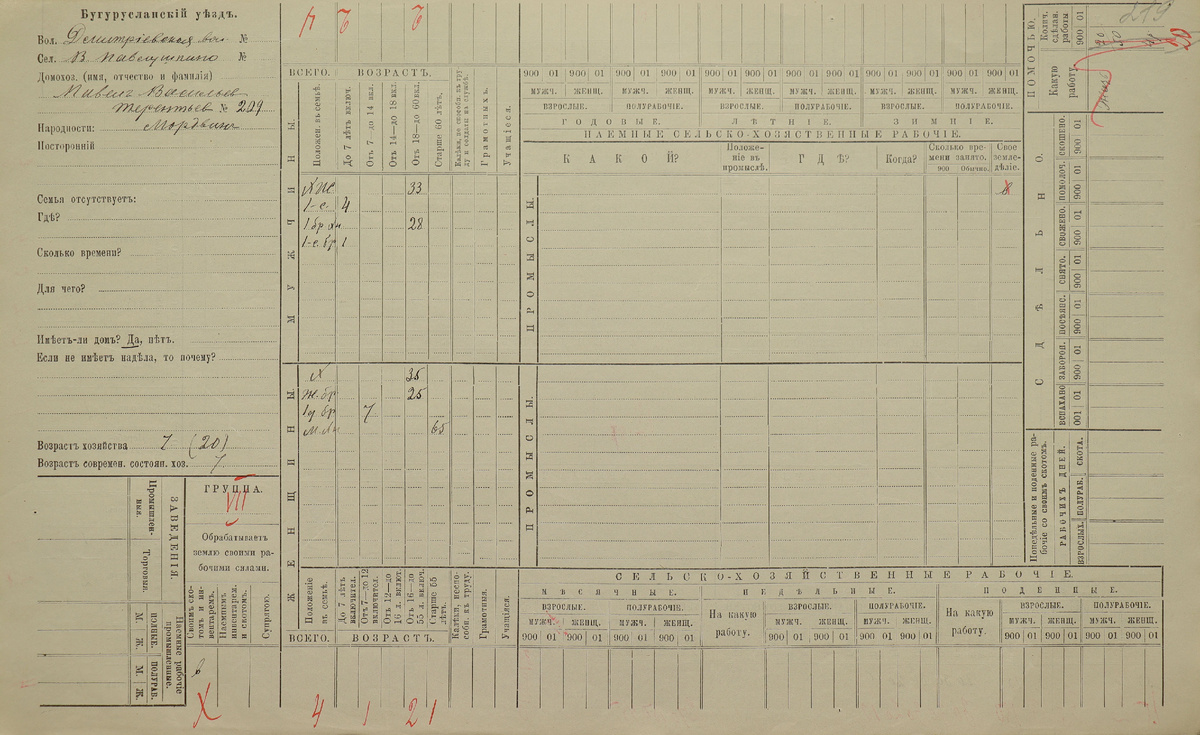 Бугурусланскій уѣздъ.
Вол. Дмитріевская вол №
Сел. В Павлушкино №
Домохоз. (имя, отчество и фамилія)
Павелъ Васильев
Терентьев № 209
Народности: Мордвинъ
Посторонній
Семья отсутствуетъ:
Гдѣ?
Сколько времени?
Для чего?
Имѣетъ-ли домъ? Да, нѣтъ.
Если не имѣетъ надѣла, то почему?
Возрастъ хозяйства 7 (20)
Возрастъ современ. состоян. хоз. 7
ЗАВЕДЕНІЯ.
Промышленныя.
Торговыя.
Наемные рабочіе промышленные.
ПОЛНЫЕ. М. Ж.
ПОЛУРАБ. М. Ж.
ГРУППА.
VII
Обрабатываетъ
землю своими ра-
бочими силами.
Своимъ скотомъ и инвентаремъ.
Наемнымъ инвентарем. и скотомъ.
Супрягою.
в
X
МУЖЧИНЫ.
ВСЕГО. ВОЗРАСТЪ.
Положен. въ семьѣ.
До 7 лѣтъ включ.
Отъ 7—до 14 вкл.
Отъ 14—до 18 вкл.
Отъ 18—до 60 вкл.
Старше 60 лѣтъ.
Грамотныхъ.
Учащіеся.
33
1-с. 4
28
1-с. бр 1
ЖЕНЩИНЫ.
Х 35
Ж. бр 25
7
65
Положеніе въ семьѣ.
До 7 лѣтъ включител.
Отъ 7—до 12 включител.
Отъ 12—до 16 л. включ.
Отъ 16—до 55 л. включ.
Старше 55 лѣтъ.
Калѣки, неспособн. къ труду.
Грамотныя.
Учащіяся.
ВСЕГО. ВОЗРАСТЪ.
4 1 2 1
900 01 900 01 900 01 900 01 900 01 900 01 900 01 900 01 900 01 900 01 900 01 900 01
МУЖЧ. ЖЕНЩ. МУЖЧ. ЖЕНЩ. МУЖЧ. ЖЕНЩ. МУЖЧ. ЖЕНЩ. МУЖЧ. ЖЕНЩ. МУЖЧ. ЖЕНЩ.
ВЗРОСЛЫЕ. ПОЛУРАБОЧІЕ. ВЗРОСЛЫЕ. ПОЛУРАБОЧІЕ. ВЗРОСЛЫЕ. ПОЛУРАБОЧІЕ.
ГОДОВЫЕ. ЛѢТНІЕ. ЗИМНІЕ.
НАЕМНЫЕ СЕЛЬСКО-ХОЗЯЙСТВЕННЫЕ РАБОЧІЕ.
КАКОЙ? Положеніе въ промыслѣ. ГДѢ? Когда? Сколько времени занято. 900 Обычно. Свое земледѣліе.
ПРОМЫСЛЫ.
ПРОМЫСЛЫ.
СЕЛЬСКО-ХОЗЯЙСТВЕННЫЕ РАБОЧІЕ.
МѢСЯЧНЫЕ. НЕДѢЛЬНЫЕ. ПОДЕННЫЕ.
ВЗРОСЛЫЕ. ПОЛУРАБОЧІЕ. На какую работу. ВЗРОСЛЫЕ. ПОЛУРАБОЧІЕ. На какую работу. ВЗРОСЛЫЕ. ПОЛУРАБОЧІЕ.
МУЖЧ. ЖЕНЩ. МУЖЧ. ЖЕНЩ. МУЖЧ. ЖЕНЩ. МУЖЧ. ЖЕНЩ. МУЖЧ. ЖЕНЩ. МУЖЧ. ЖЕНЩ.
900 01 900 01 900 01 900 01 900 01 900 01 900 01 900 01 900 01 900 01 900 01 900 01
219
ПОМОЧЬЮ.
Колич. сдѣлан. работы
900 01
20
Какую работу.
СДѢЛЬНО.
ВСПАХАНО ЗАБОРОН. ПОСѢЯНС. СНЯТО. СВОЖЕНО. ПОМОЛОЧ. СКОШЕНО.
001 01 900 01 900 01 900 01 900 01 900 01 900 01
Понедѣльные и поденные рабочіе со своимъ скотомъ.
РАБОЧИХЪ ДНЕЙ.
ВЗРОСЛЫХ. ПОЛУРАБ. СКОТА.